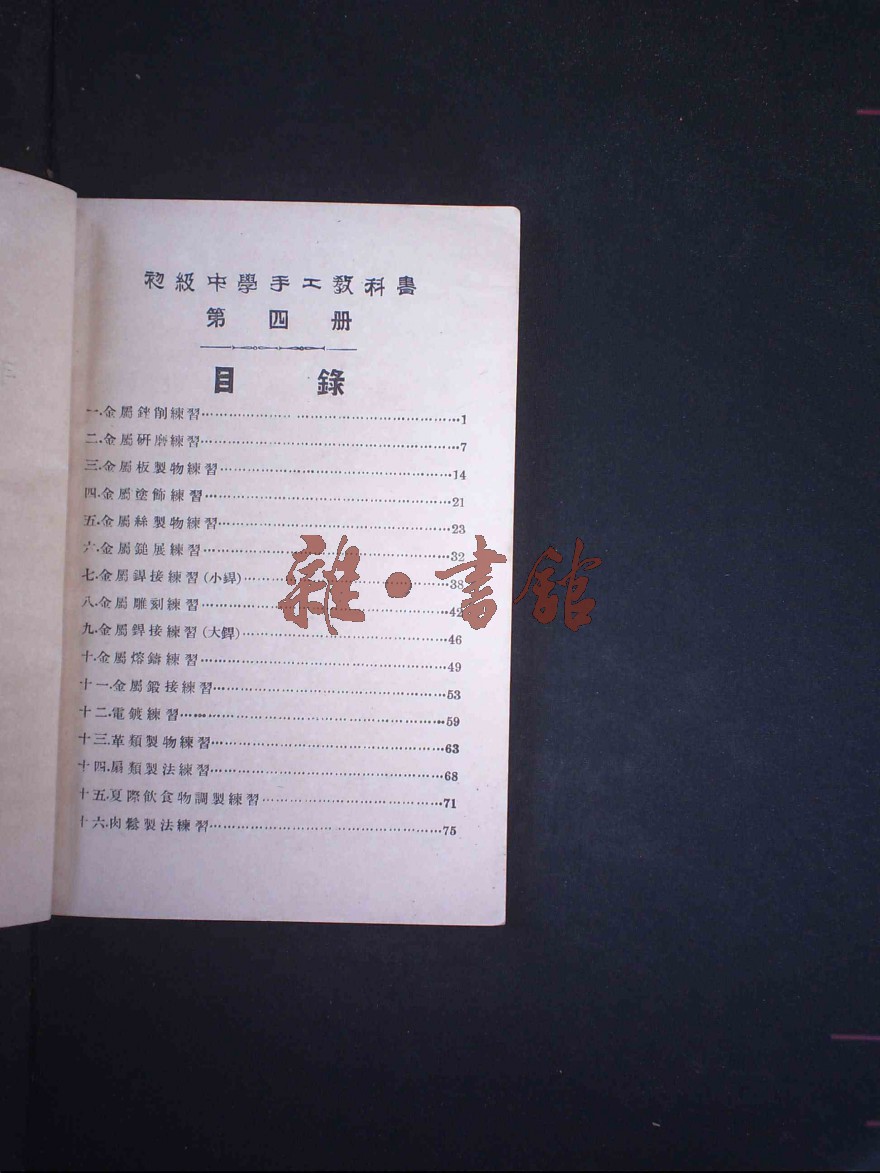 初級中學手工教科書
第四册
目錄
一.金屬銼削練習 1
二.金屬研磨練習 7
三.金屬板製物練習 14
四.金屬塗飾練習 21
五.金屬絲製物練習 23
六.金屬鎚展練習 32
七.金屬銲接練習(小銲) 38
八.金屬雕刻練習 42
九.金屬銲接練習(大銲) 46
十.金屬熔鑄練習 49
十一.金屬鍛接練習 53
十二.電鍍練習 59
十三.革類製物練習 63
十四.扇類製法練習 68
十五.夏際飲食物調製練習 71
十六.肉鬆製法練習 75
雜·書館